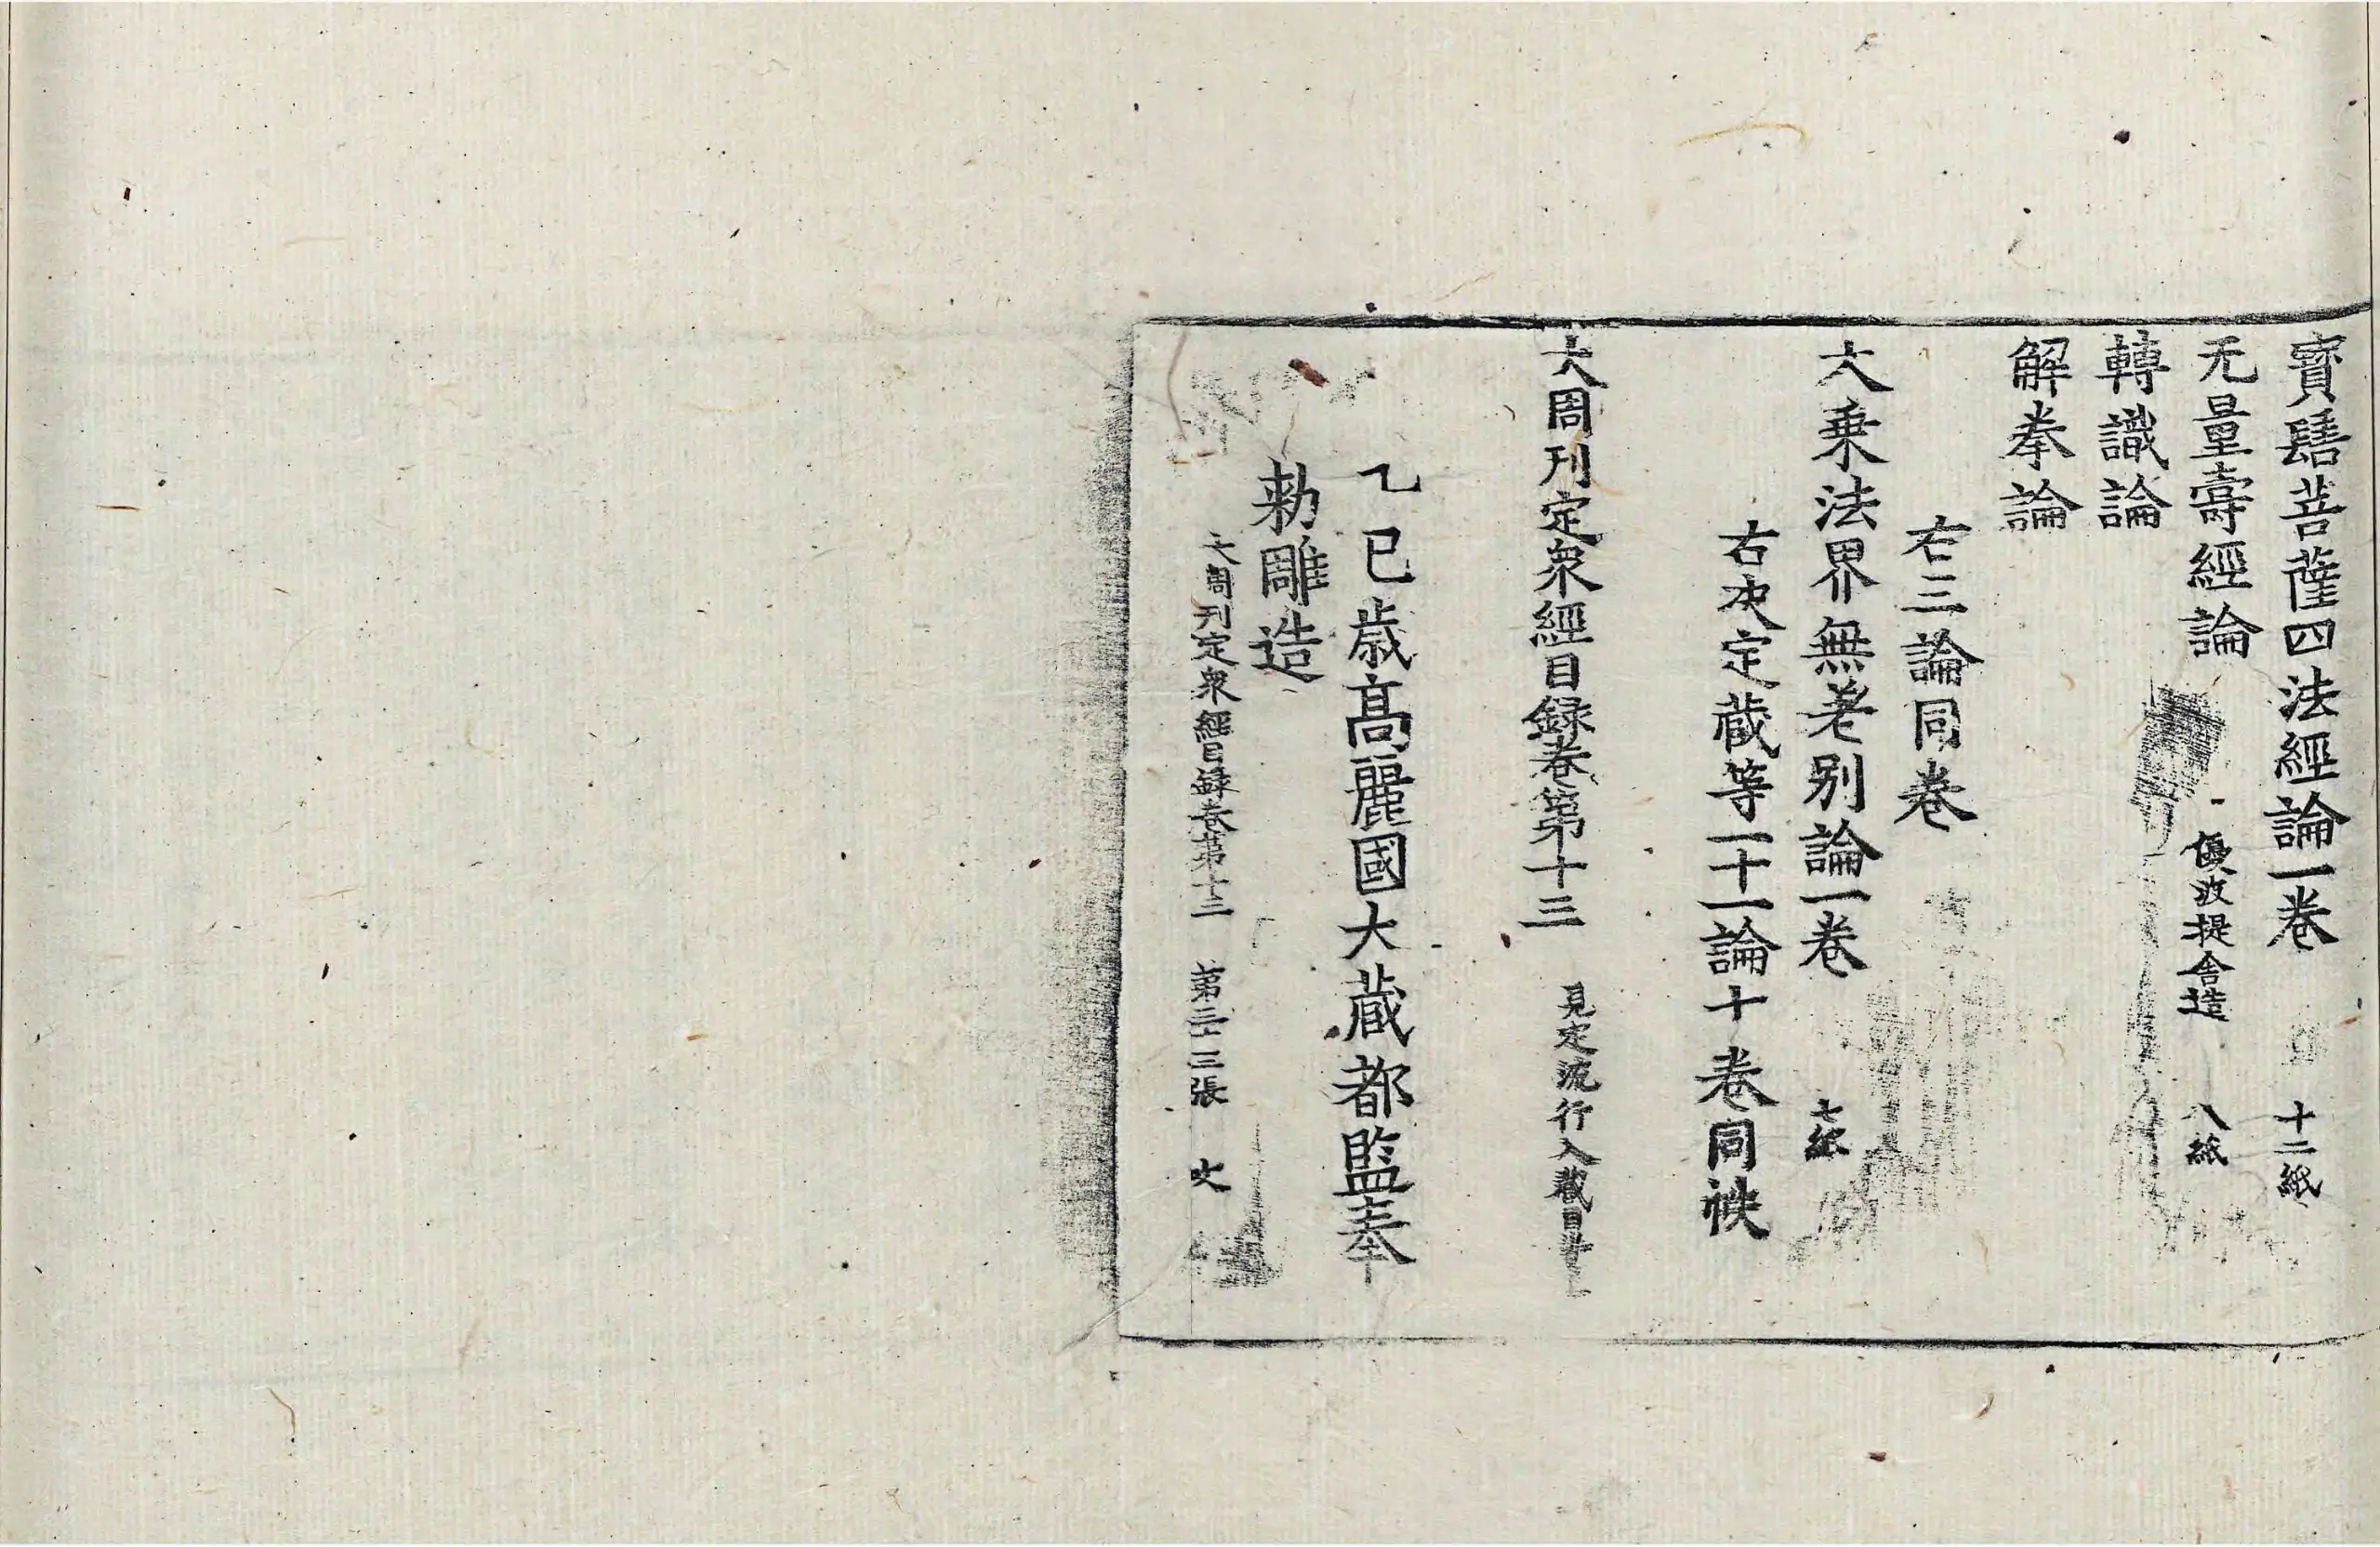 寳髻菩薩四法經論一卷 十二紙
无量壽經論 優波提舍造 八紙
轉識論
解拳論
右三論同卷
大乗法界無差别論一卷 七紙
右决定蔵等二十一論十卷同袟
大周刊定衆經目録卷第十三 見定流行入藏目
乙巳歳髙麗國大蔵都監奉
勅雕造
大周刊定衆經目録卷第十三 第三十三張